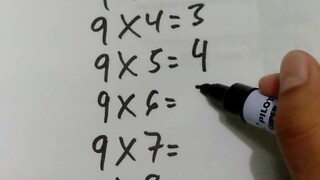 9×4=3
9×5=4
9×6=
9×7=
PILOT